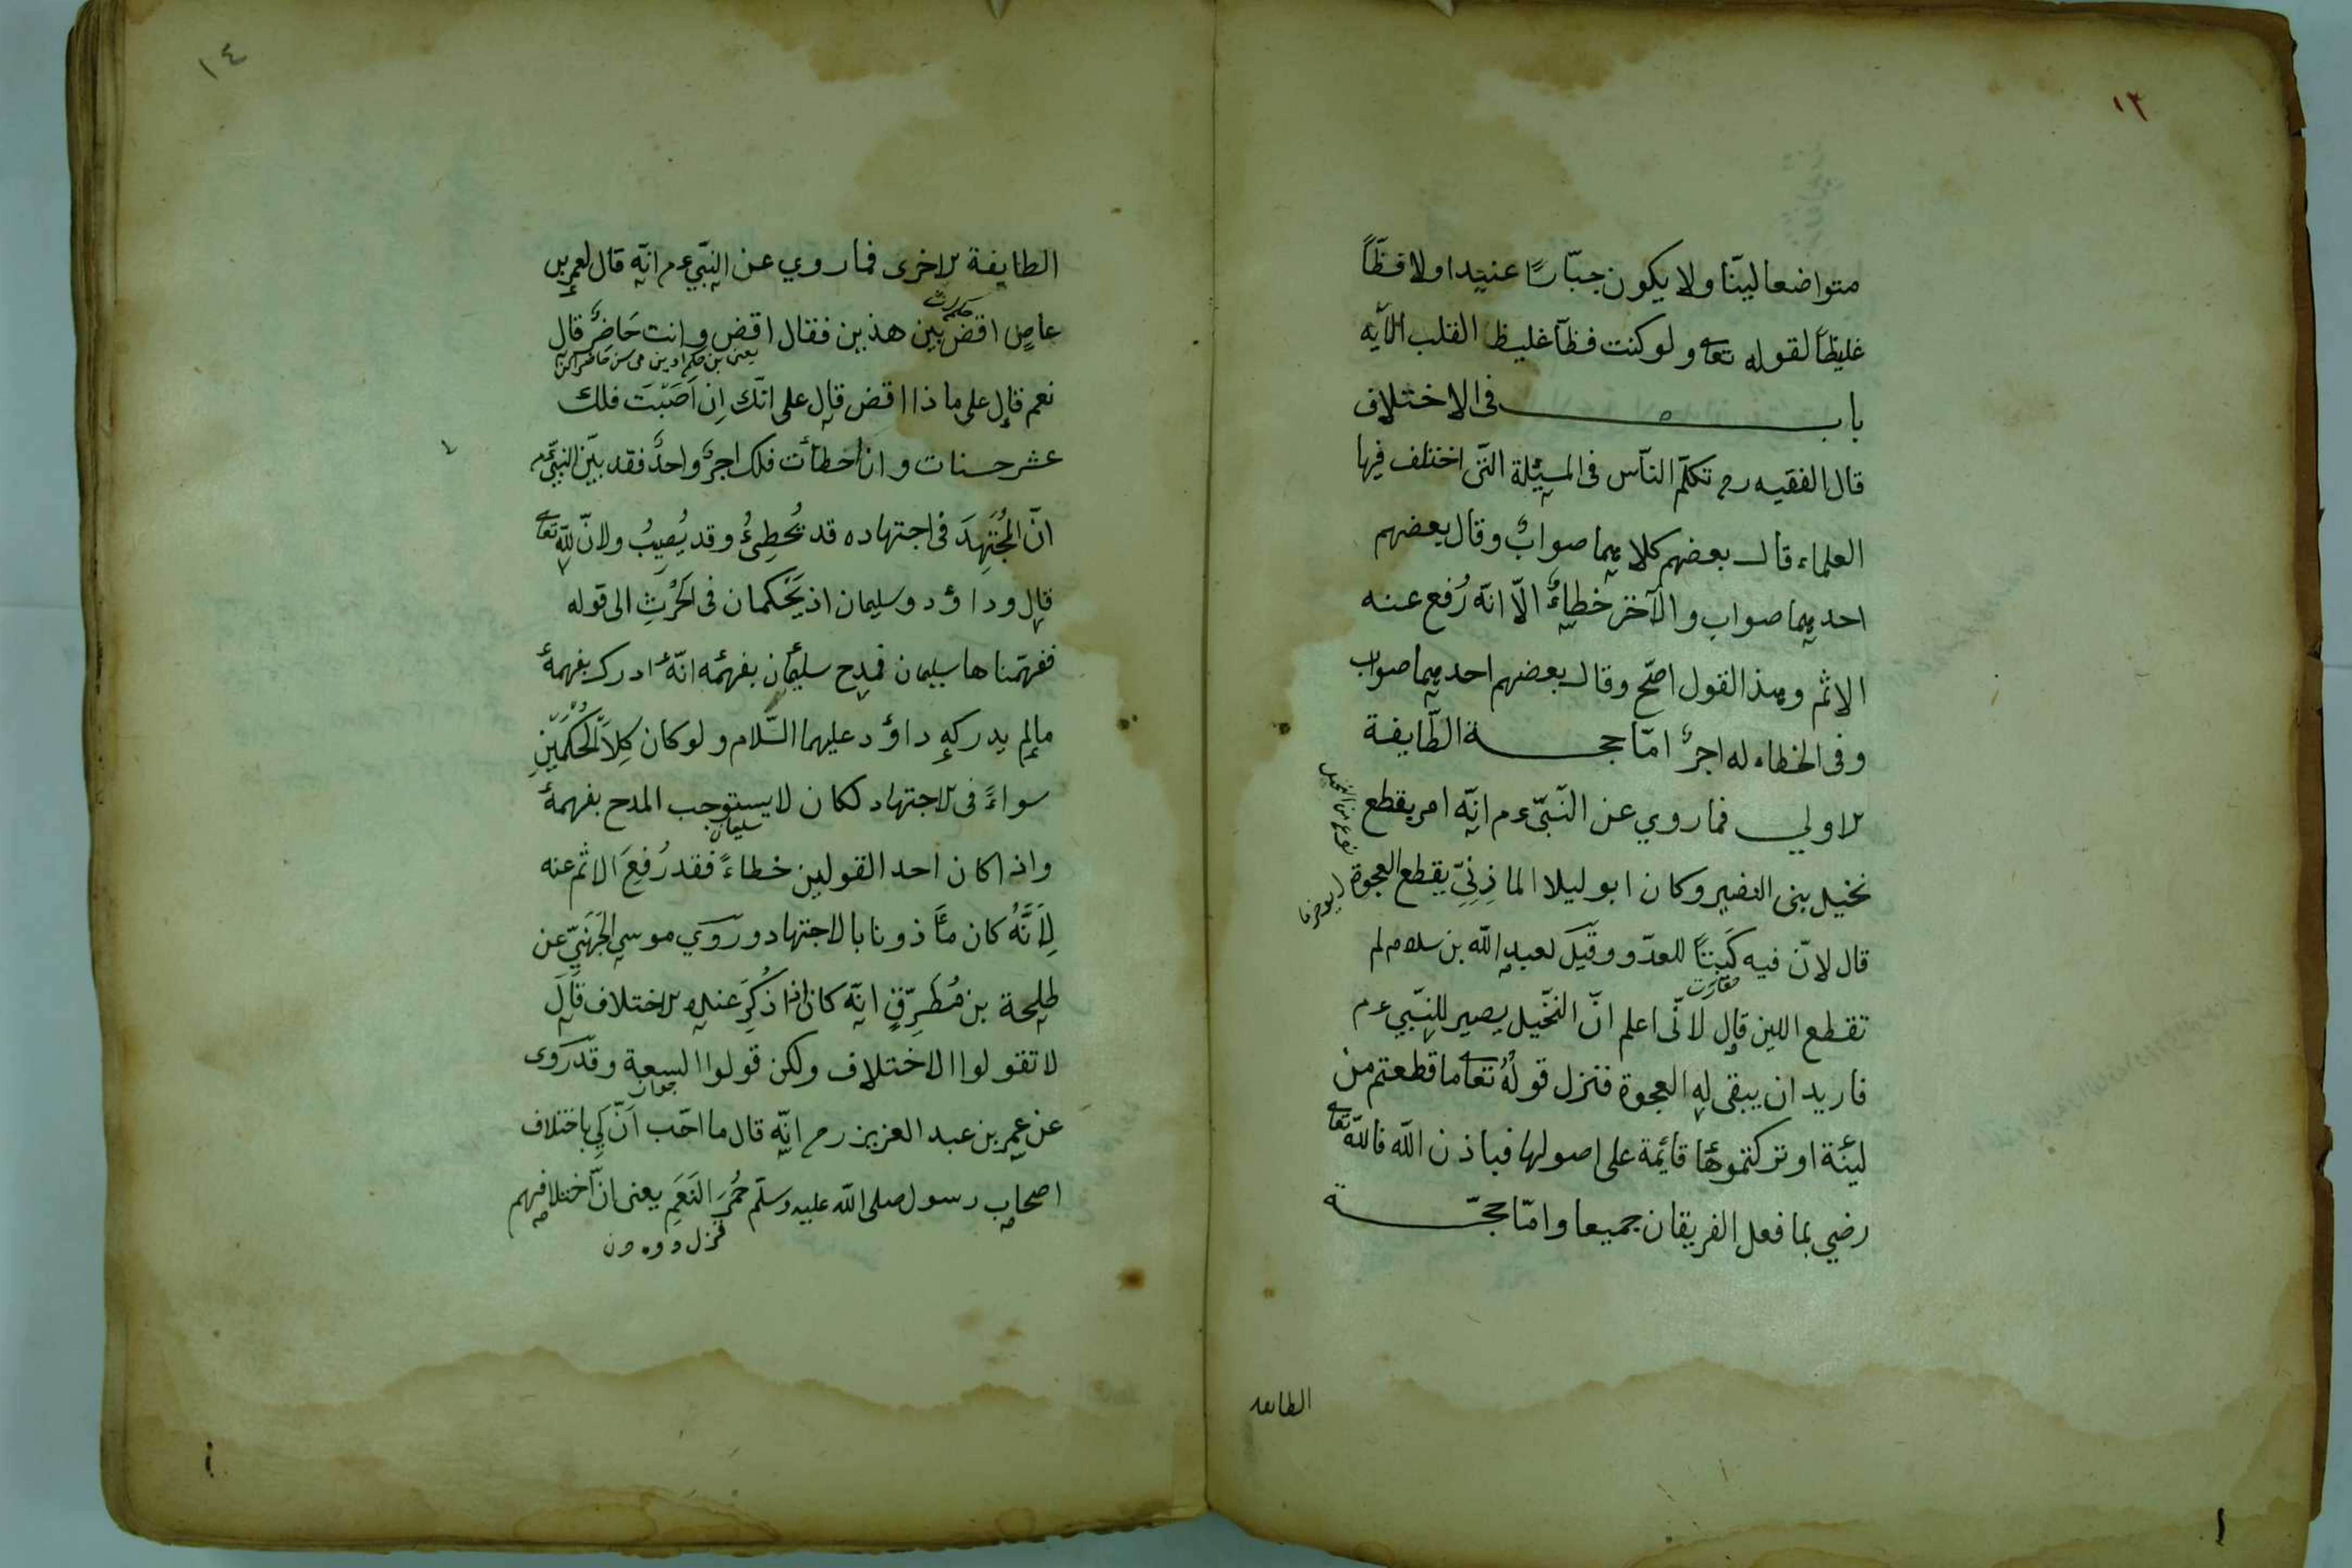 ١٣
متواضعا ليّنا ولا يكون جبّارًا عنيدا ولا فظّاً
غليظاً لقوله تعا ولو كنت فظاً غليظ القلب الآيه
باب في الاختلاف
قال الفقيه رح تكلّم النّاس فى المسئلة الّتى اختلف فيها
العلماء قال بعضهم كلاهما صوابٌ وقال بعضهم
احدهما صواب والآخر خطاءٌ الّا انّه رُفع عنه
الاثم وهذا القول اصحّ وقال بعضهم احدهما صواب
وفى الخطاء له اجرٌ امّا حجة الطّايفة
الاولي فماروي عن النّبىّ ءم انّه امر بقطع
نخيل بنى النضير وكان ابو ليلا الماذِنِيّ يقطع العجوة
قال لانّ فيه كَبتاً للعدّو وقيل لعبد الله بن سلام لم
تقطع اللين قال لانّى اعلم انّ النّخيل يصير للنّبي ءم
فاريد ان يبقى له العجوة فنزل قولهُ تعا ما قطعتم من
لينة او تركتموها قائمة على اصولها فباذن الله فالله تعا
رضي بما فعل الفريقان جميعا وامّا حجّة
الطايفة
١٤
الطايفة الاخرى فماروي عن النّبيّ ءم انّه قال لعمرو بن
عاصٍ اقض بين هذين فقال اقض وانت حَاضرٌ قال
نعم قال على ماذا اقض قال على انّك اِن اَصَبْتَ فلك
عشر حسنات وان اخطأت فلك اجرٌ واحدٌ فقد بيّن النبيّ ءم
انّ المُجتَهِدَ فى اجتهاده قد يُخطِئُ وقد يُصِيبُ ولانّ لله تعا
قال وداؤد وسليمان اذ يَحْكمان فى الحَرْثِ الى قوله
ففهّمناها سليمان فمدح سليمان بفهمه انّه ادرك بفهمه
مالم يدركه داؤد عليهما السّلام ولو كان كِلاَ الحُكْمَيْنِ
سواءً فى الاجتهاد لكان لا يستوجب المدح بفهمه
سليمان
واذا كان احد القولين خطاءً فقد رُفِعَ الاثم عنه
لِاَنَّهُ كان مأذونا بالاجتهاد ورَوَي موسي الجَهَنِيّ عن
طلحة بن مُطَرِّفٍ انّه كان اذا ذُكِرَ عنده الاختلاف قال
لا تقولوا الاختلاف ولكن قولوا السعة وقد رَوى
عن عمر بن عبد العزيز رح انّه قال ما احّب اَنّ لِي باختلاف
اصحاب رسول صلى الله عليه وسلّم حُمرَ النَعَمِ يعنى انّ اختلافهم